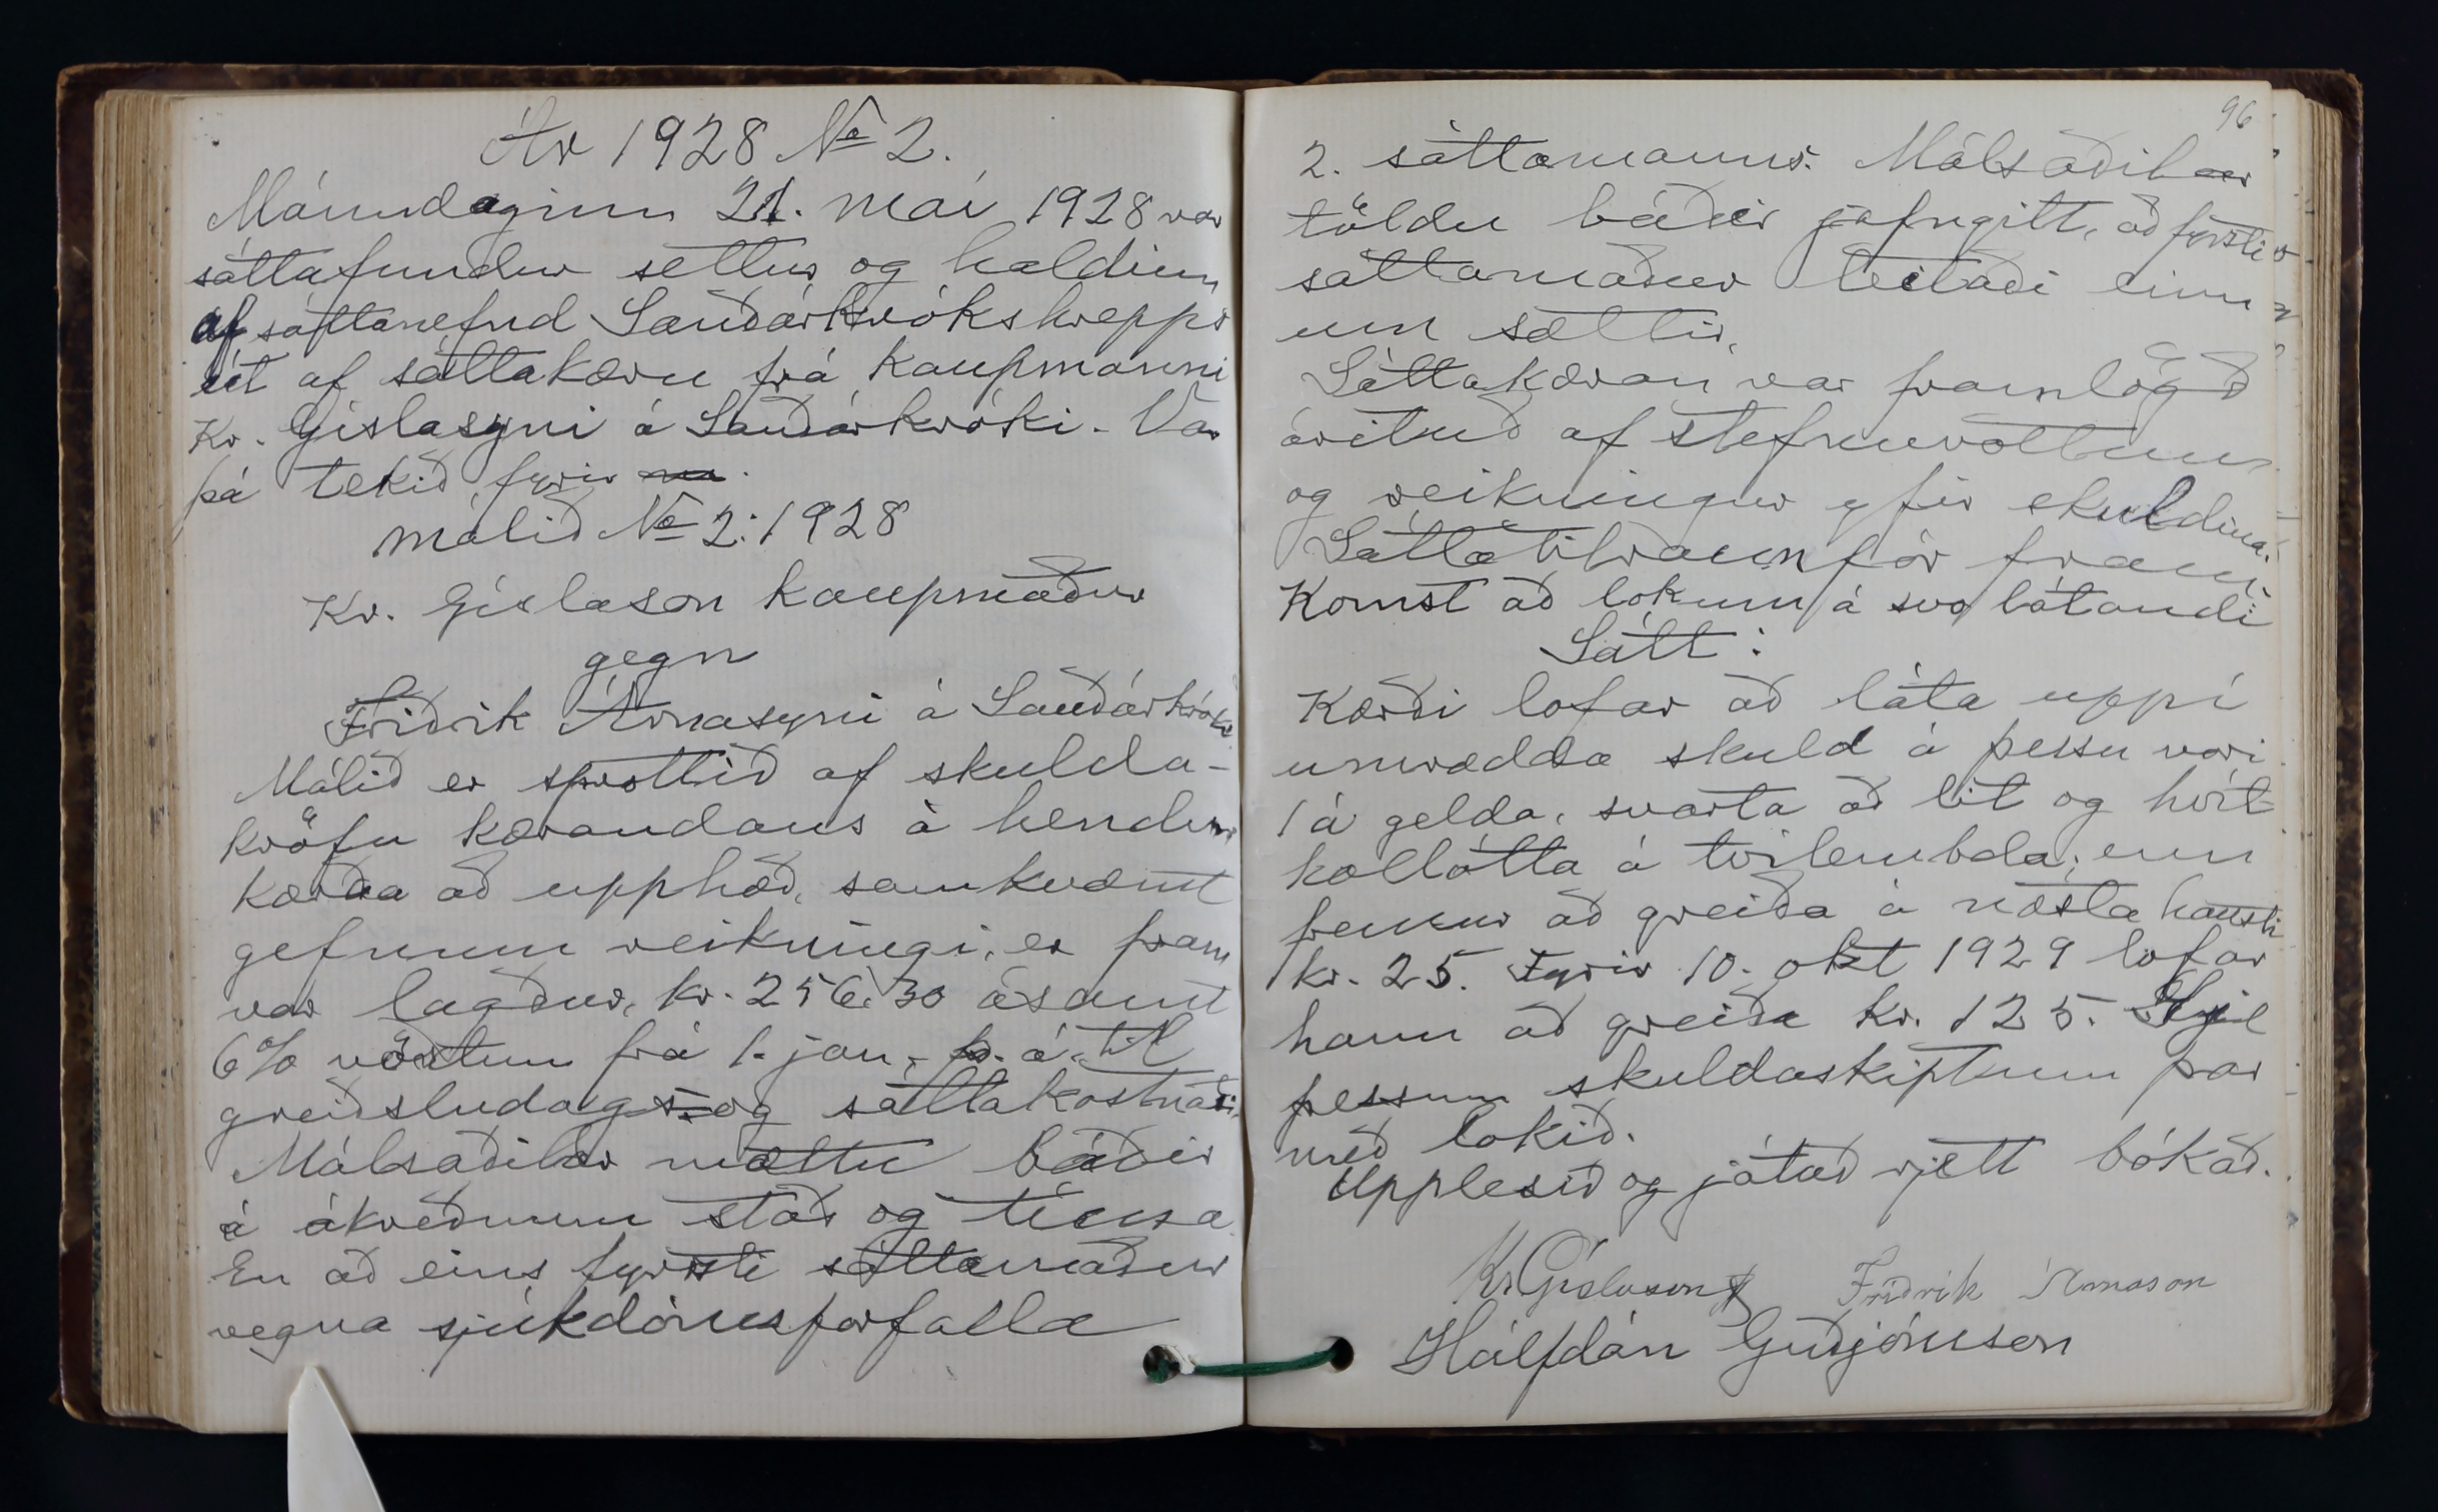 Ár 1928 No 2.
Mánudaginn 21. maí 1928 var
sáttafundur settur og haldinn
af sáttanefnd Sauðárkrókshrepps
út af sáttakæru frá kaupmanni
Kr. Gíslasyni á Sauðárkróki. Var
þá tekið fyrir
málið No 2: 1928
Kr. Gíslason kaupmaður
gegn
Friðrik Árnasyni á Sauðárkróki
Málið er sprottið af skulda-
kröfu kærandans á hendur
kærða að upphæð, samkvæmt
gefnum reikningi, er fram
var lagður, kr. 256.30 ásamt
6% vöxtum frá 1. jan. þ. á. til
greiðsludags og sáttakostnaði.
Málsaðilar mættu báðir
á ákveðnum stað og tíma
En að eins fyrsti sáttamaður
vegna sjúkdómsforfalla
96
2. sáttamanns. Málsaðilar
töldu báðir jafngilt, að fyrsti
sáttamaður leitaði einn
um sættir.
Sáttakæran var framlögð
árituð af stefnuvottum
og reikningur yfir skuldina.
Sáttatilraun fór fram
Komst að lokum á svo látandi
Sátt:
Kærði lofar að láta uppí
umrædda skuld á þessu vori
1 á gelda, svarta að lit og hvít-
kollótta á tvílembda; enn
fremur að greiða á næsta hausti
kr. 25. Fyrir 10. okt 1929 lofar
hann að greiða kr. 125.
þessum skuldaskiptum þar
með lokið.
Upplesið og játað rjett bókað.
Kr Gíslason Friðrik Árnason
Hálfdán Guðjónsson